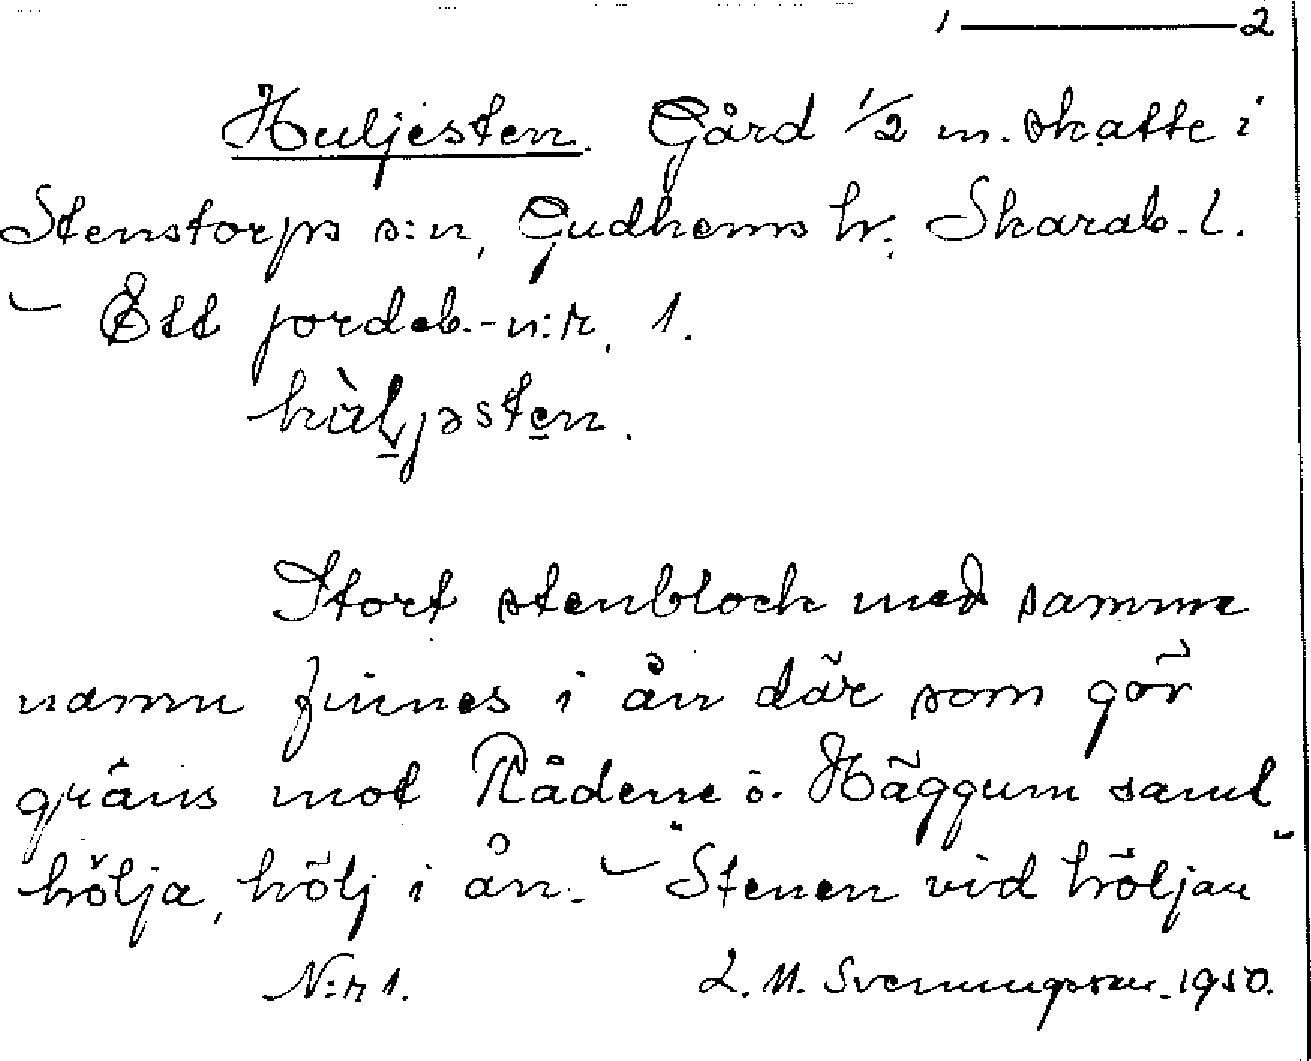 1 — 2
Huljesten. Gård 1/2 m. skatte i
Stenstorps s:n, Gudhems hr. Skarab. l.
– Ett jordeb.-n:r, 1.
hàljəsten.
Stort stenblock med samma
namn finnes i ån där som gör
gräns mot Rådene o. Häggum samt
hölja, hölj i ån. – "Stenen vid höljan"
N:r 1. L. M. Svenungsson 1950.